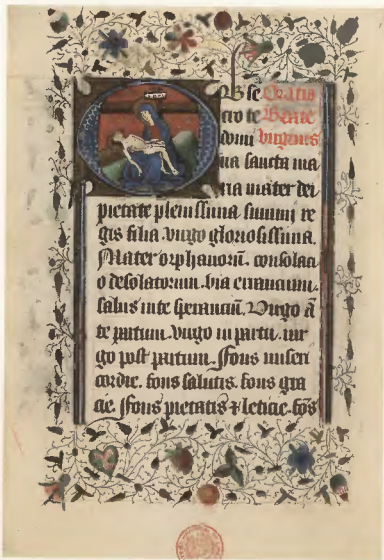 B se Oratio
cro te Beate
domi virginis
na sancta ma
ria mater dei
pietate plenissima summi re
gis filia. virgo gloriosissima.
Mater orphanorum. consolaci
o desolatorum. via errancium.
salus in te sperancium. Virgo ā
te partum. virgo in partu. vir
go post partum. ffons miseri
cordie. fons salutis. fons gra
cie. ffons pietatis ⁊ leticie. fōs